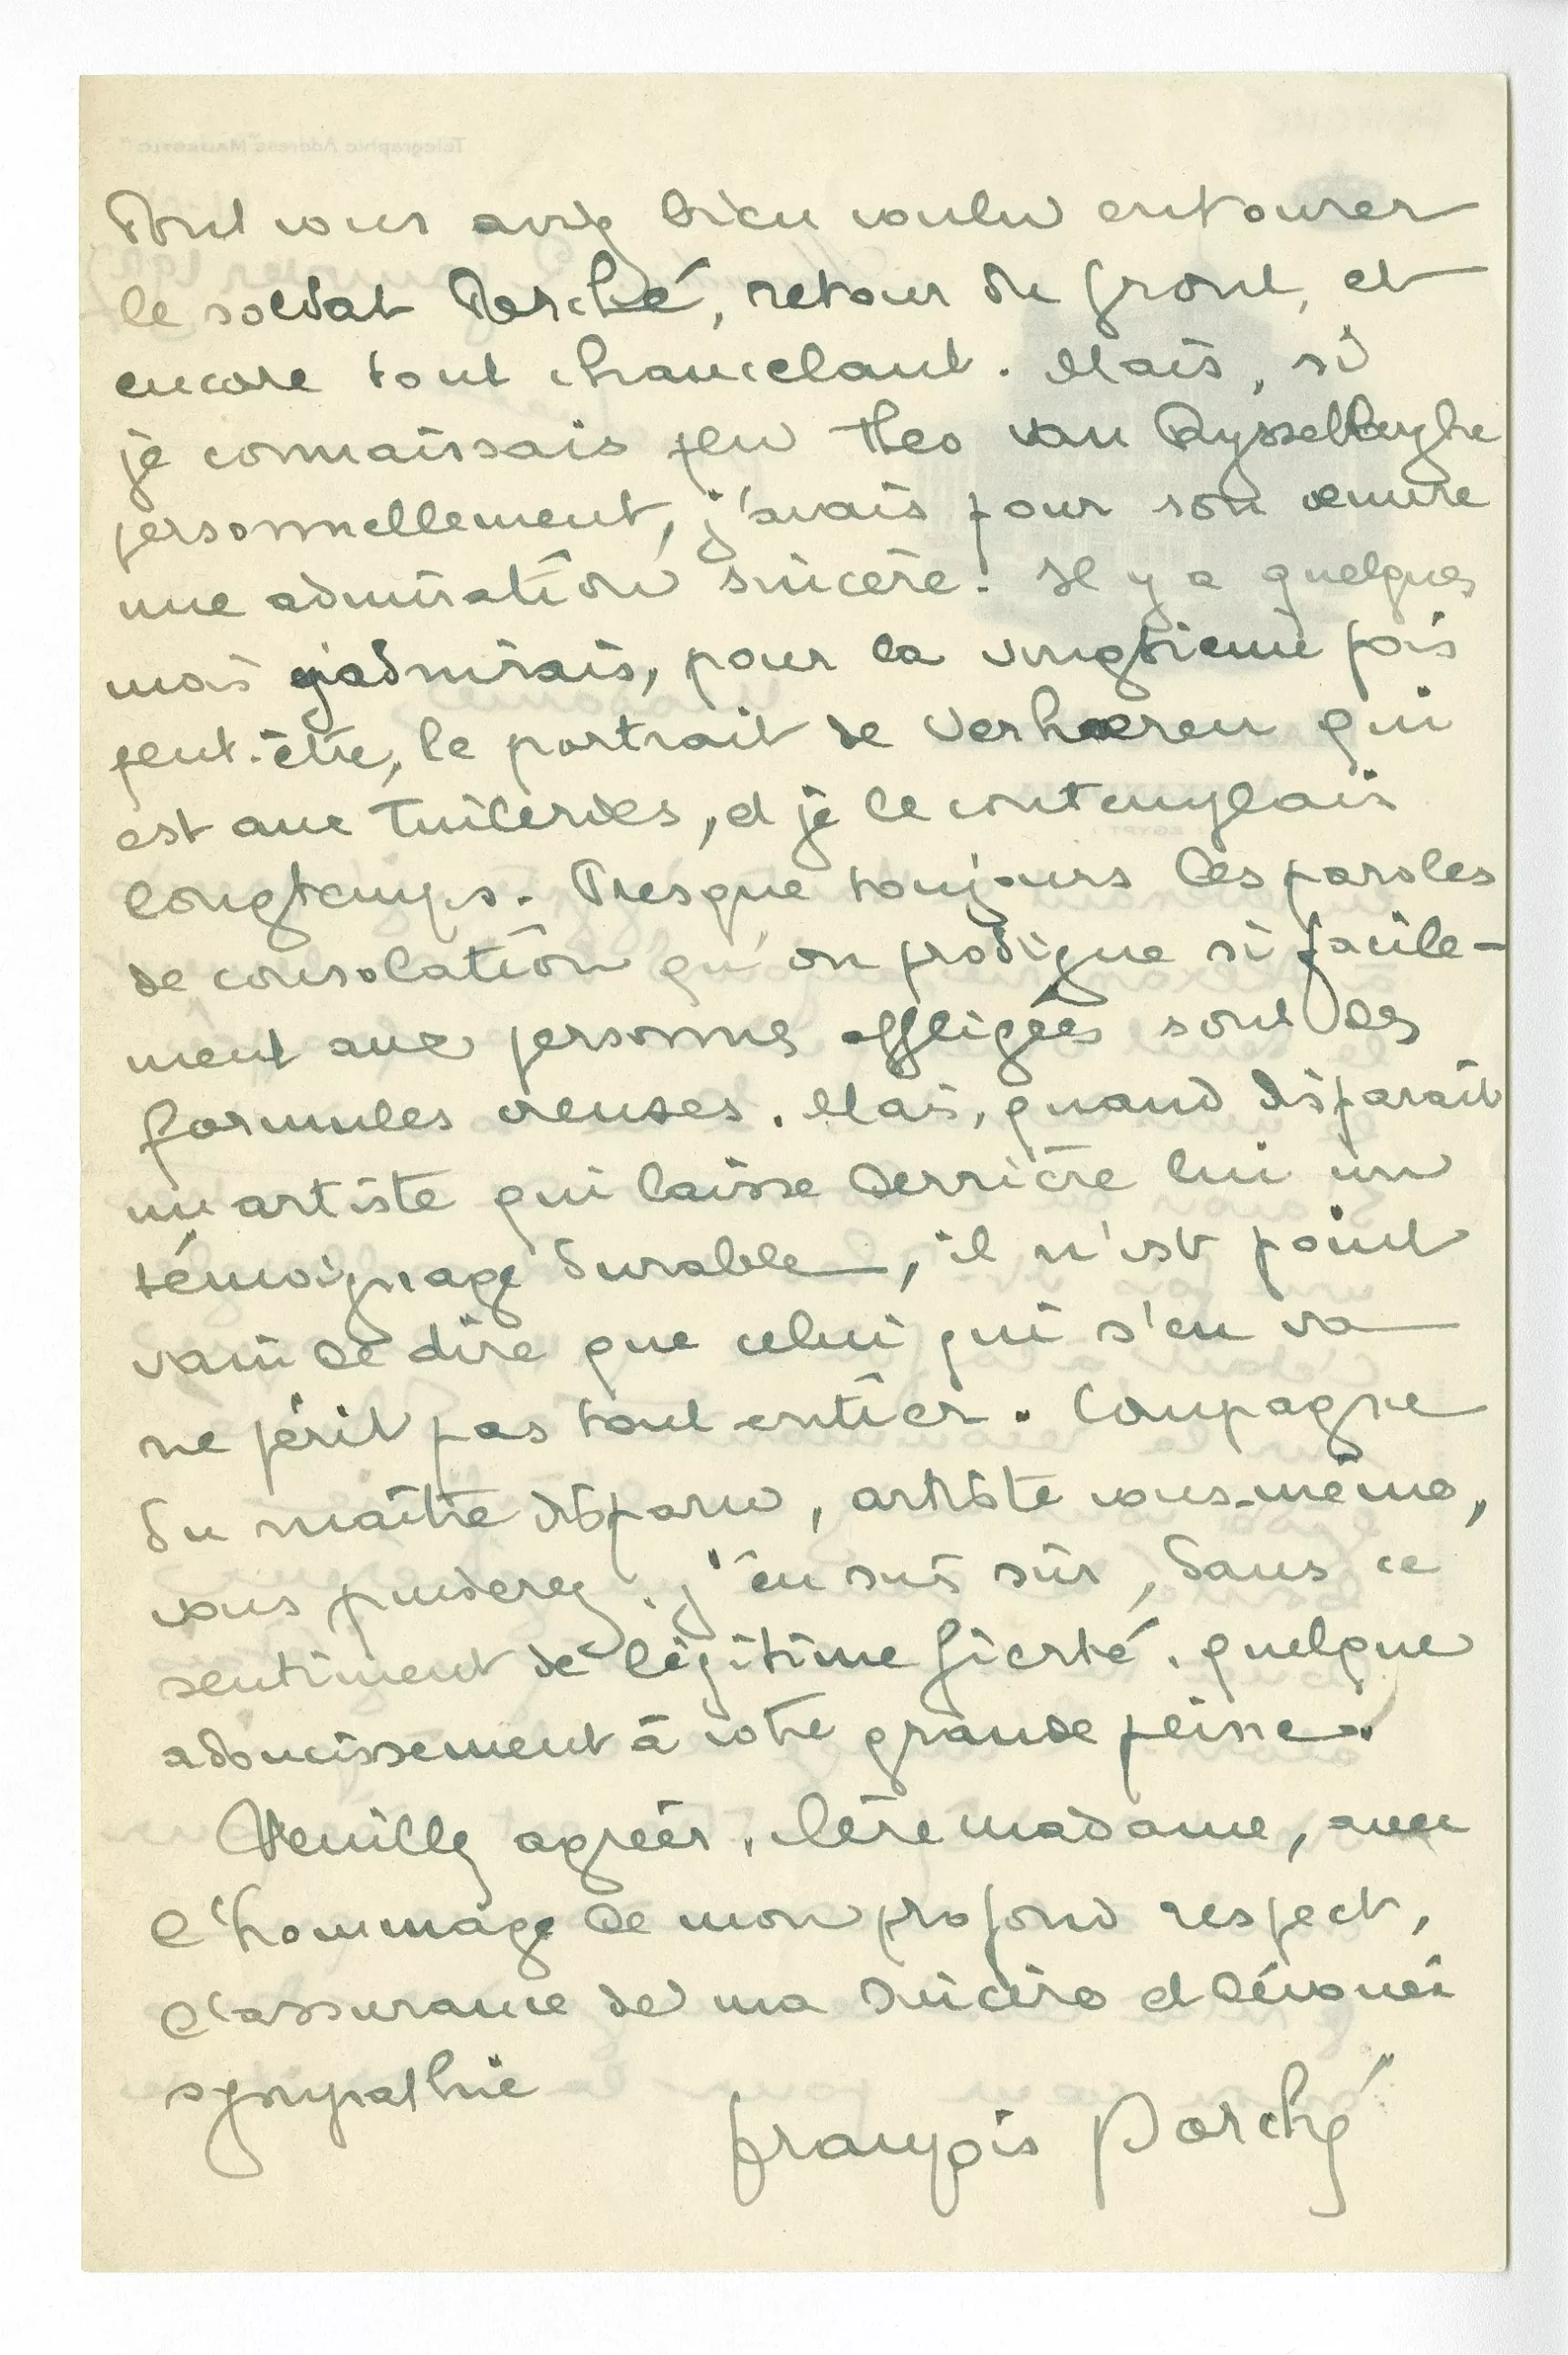 Dont vous aviez bien voulu entourer
le soldat Porché, retour du front, et
encore tout chancelant. Mais, si
je connaissais peu Theo van Rysselberghe
personnellement, j'avais pour son œuvre
une admiration sincère. Il y a quelques
mois j'admirais, pour la vingtième fois
peut-être, le portrait de Verhaeren qui
est aux Tuileries, et je le contemplais
longtemps. Presque toujours les paroles
de consolation qu'on prodigue si facile-
ment aux personnes affligées sont des
formules creuses. Mais, quand disparaît
un artiste qui laisse derrière lui un
témoignage durable, il n'est point
vain de dire que celui qui s'en va
ne périt pas tout entier. Compagne
du maître disparu, artiste vous-même,
vous puiserez, j'en suis sûr, dans ce
sentiment de légitime fierté, quelque
adoucissement à votre grande peine.
Veuillez agréer, chère madame, avec
l'hommage de mon profond respect,
l'assurance de ma sincère et dévouée
sympathie
François Porché